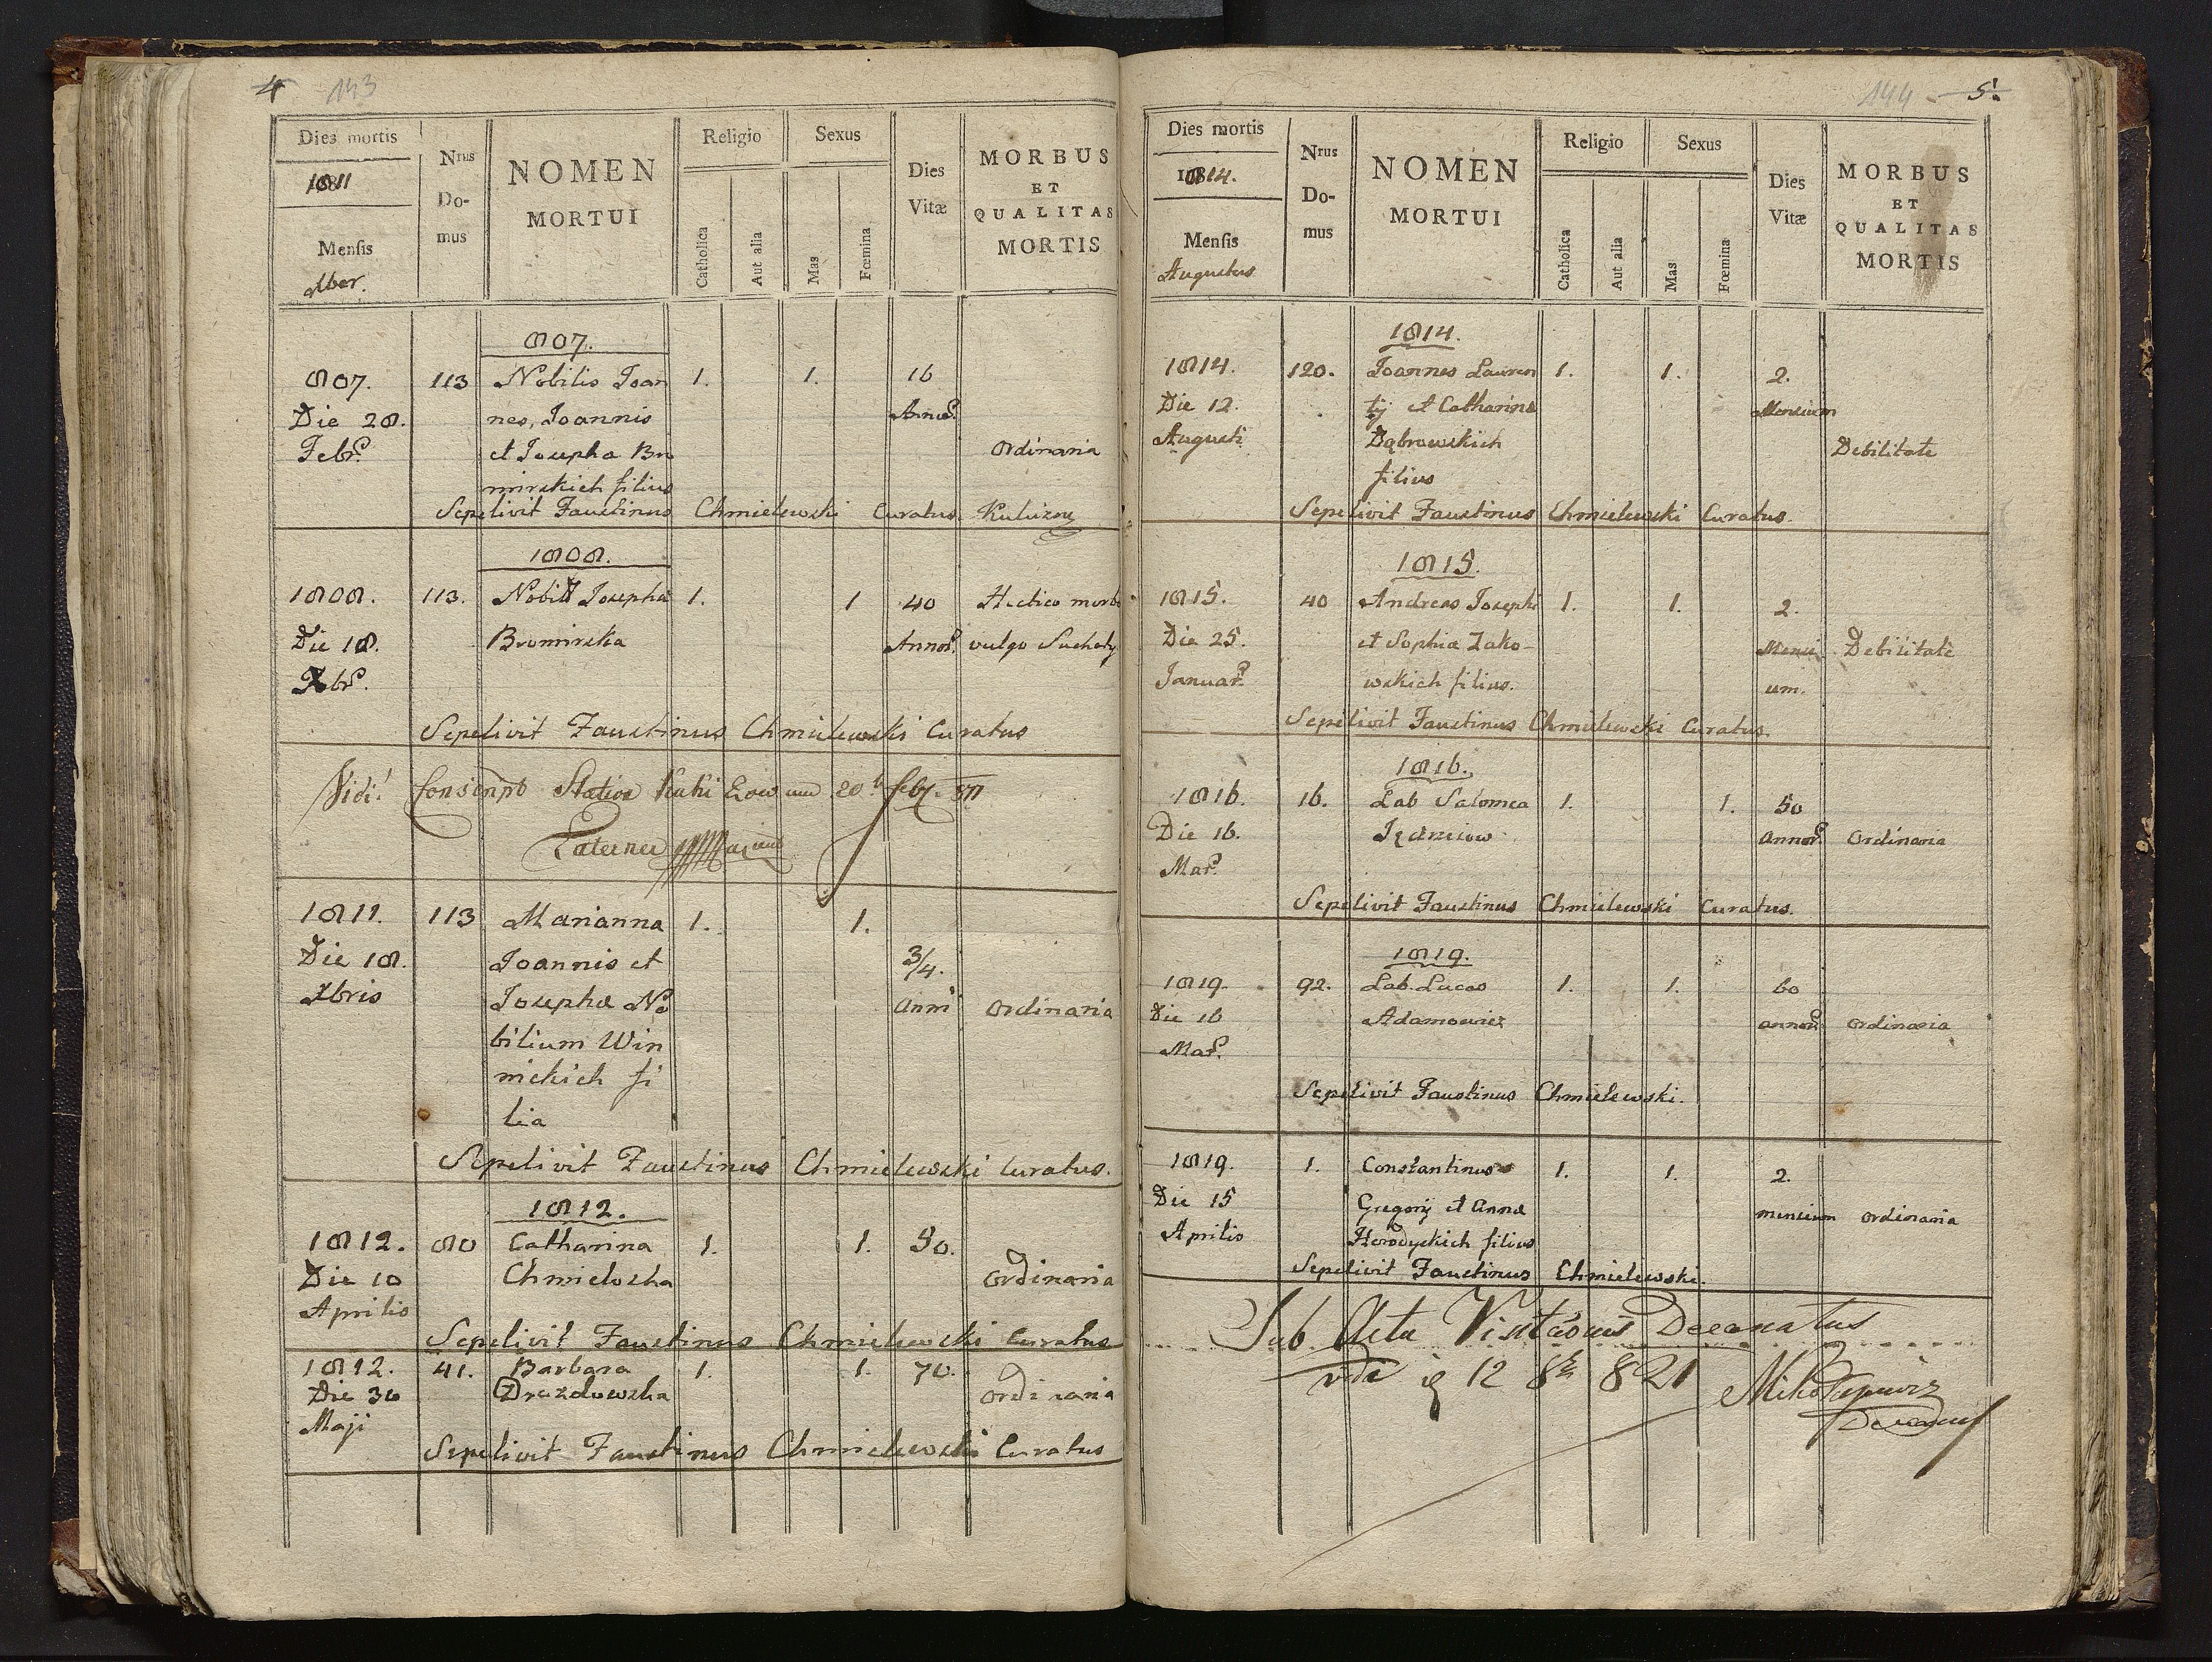 4 143
Dies mortis
1811
Mensis
Xber.
Nrus Domus
NOMEN
MORTUI
Religio
Catholica
Aut alia
Sexus
Mas
Fœmina
Dies
Vitæ
MORBUS
ET
QUALITAS
MORTIS
807.
807. 113 Nobilis Joan 1. 1. 16
Die 28. nes, Joannis Annor.
Febr. et Josepha Bro ordinaria
mirskich filius
Sepelivit Faustinus Chmielewski Curatus
1808.
1808. 113. Nobil Josepha 1. 1 40 Hectico morbo
Die 18. Bromirska Annor. vulgo Suchoty
Xbr.
Sepelivit Faustinus Chmielewski Curatus
Vidi!
1811. 113 Marianna 1. 1.
Die 18. Joannis et 3/4.
Xbris Josepha No anni ordinaria
bilium Win
nickich fi
lia
Sepelivit Faustinus Chmielewski Curatus.
1812.
1812. 80 Catharina 1. 1. 50.
Die 10 Chmielozka ordinaria
Aprilis
Sepelivit Faustinus Chmielewski Curatus
1812. 41. Barbara 1. 1. 70.
Die 30 Drozdowska ordinaria
Maji
Sepelivit Faustinus Chmielewski Curatus
144 5.
Dies mortis
1814.
Mensis
Augustus
Nrus Domus
NOMEN
MORTUI
Religio
Catholica
Aut alia
Sexus
Mas
Fœmina
Dies
Vitæ
MORBUS
ET
QUALITAS
MORTIS
1814.
1814. 120. Joannes Lauren 1. 1. 2.
Die 12. tij et Catharina Mensium
Augusti Dąbrowskich Debilitate
filius
Sepelivit Faustinus Chmielewski Curatus.
1815.
1815. 40 Andreas Josephi 1. 1. 2.
Die 25. et Sophia Zako- Mensi Debilitate
Januar. wskich filius. um.
Sepelivit Faustinus Chmielewski Curatus.
1816.
1816. 16. Lab Salomea 1. 1. 50
Die 16. annor. ordinaria
Mar.
Sepelivit Faustinus Chmielewski Curatus.
1819.
1819. 92. Lab. Lucas 1. 1. 60
Die 16 Adamowicz annor. ordinaria
Mar.
Sepelivit Faustinus Chmielewski.
1819. 1. Constantinus 1. 1. 2.
Die 15 Gregorij et Anna mensium ordinaria
Aprilis Horodyskich filius
Sepelivit Faustinus Chmielewski.
Sub Actu Visitaōnis Decanatus
12 821